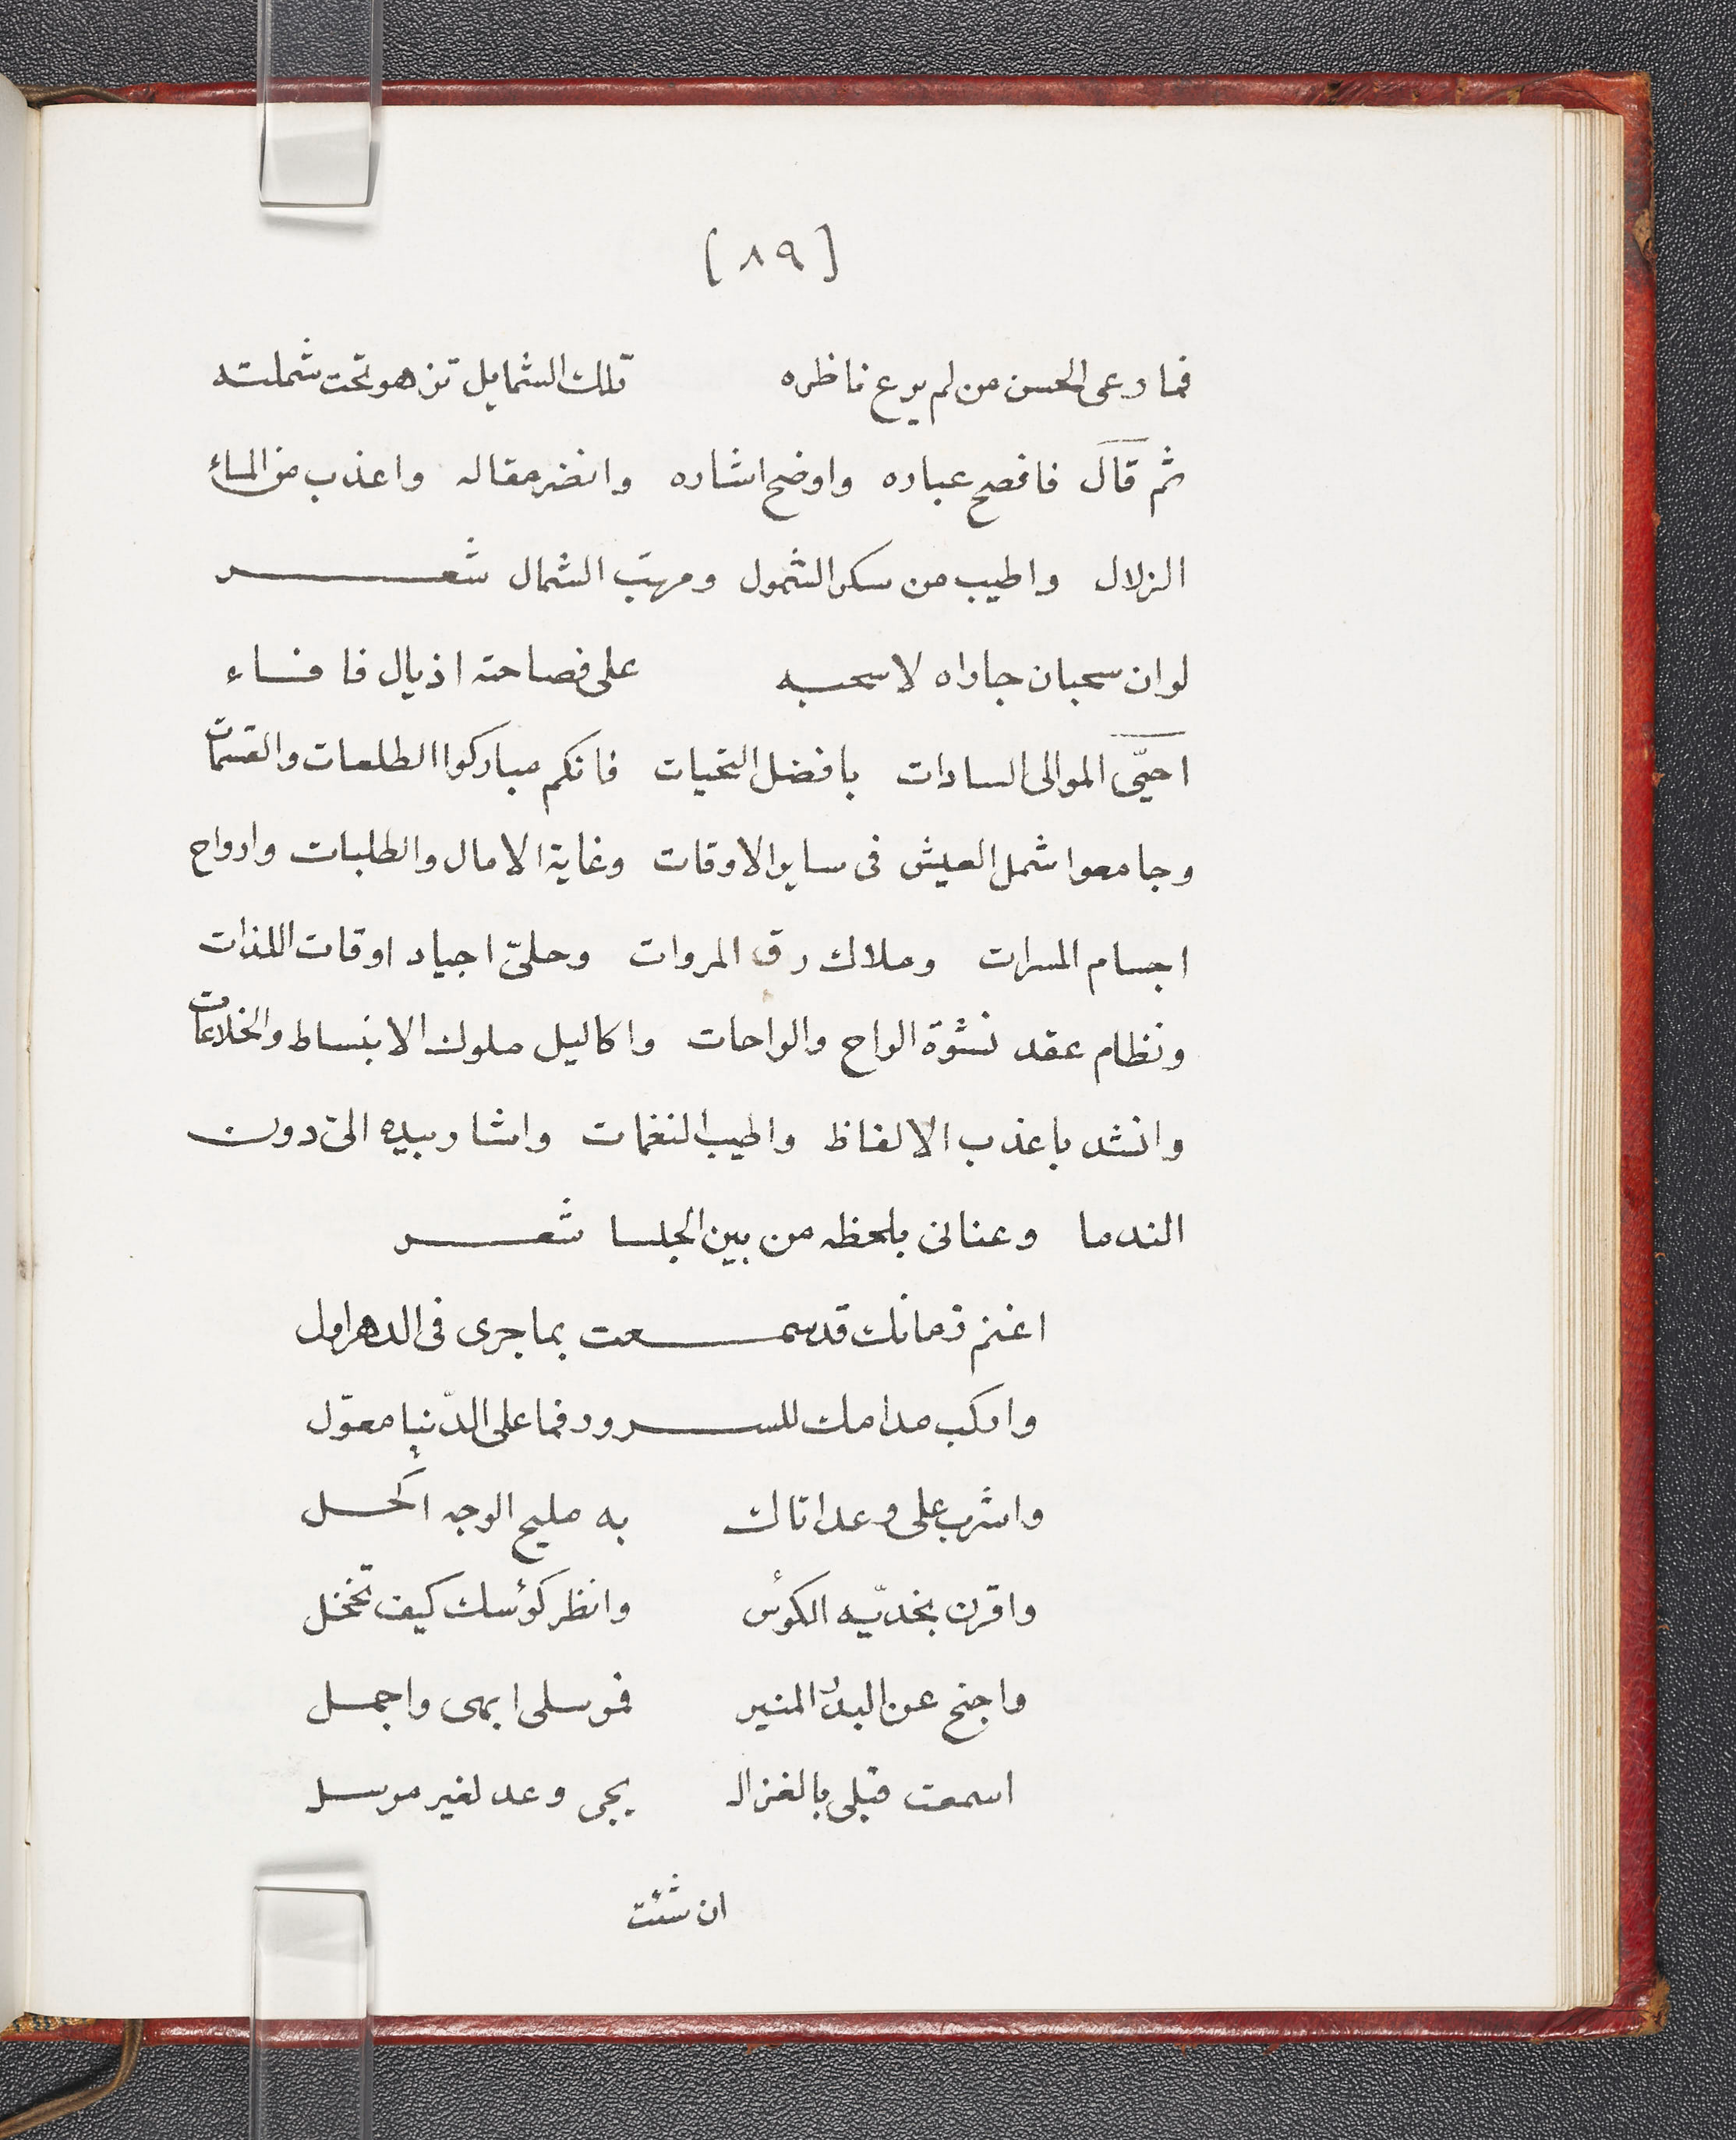 [٨٩]
فما رعى الحسن من لم يرع ناظره تلك الشمايل تزهو تحت شملته
ثم قال فافصح عباره واوضح اشاره وانضر مقاله واعذب من الماء
الزلال واطيب من سكر الشمول ومهبّ الشمال شعر
لو ان سحبان جاراه لاسحبه على فصاحته اذيال فافاء
احيّى الموالى السادات بافضل التحيات فانكم مباركوا الطلعات والقسمات
وجامعوا شمل العيش فى ساير الاوقات وغاية الامال والطلبات وارواح
اجسام المسرات وملاك رق المروات وحلىّ اجياد اوقات اللذات
ونظام عقد نشوة الراح والراحات واكاليل ملوك الانبساط والخلاعات
وانشد باعذب الالفاظ واطيب النغمات واشار بيده الىّ دون
الندما وعنانى بلحظه من بين الجلسا شعر
اغنم زمانك قد سمعت بما جرى فى الدهر اول
واركب مدامك للسرور فما على الدّنيا معوّل
واشرب على وعد اتاك به مليح الوجه اكحل
واقرن بخدّيه الكؤس وانظر كؤسك كيف تخجل
واجنح عن البدر المنير فموسلى ابهى واجمل
اسمعت قبلى بالغزال يجى وعد لغير مرسل
ان شئت